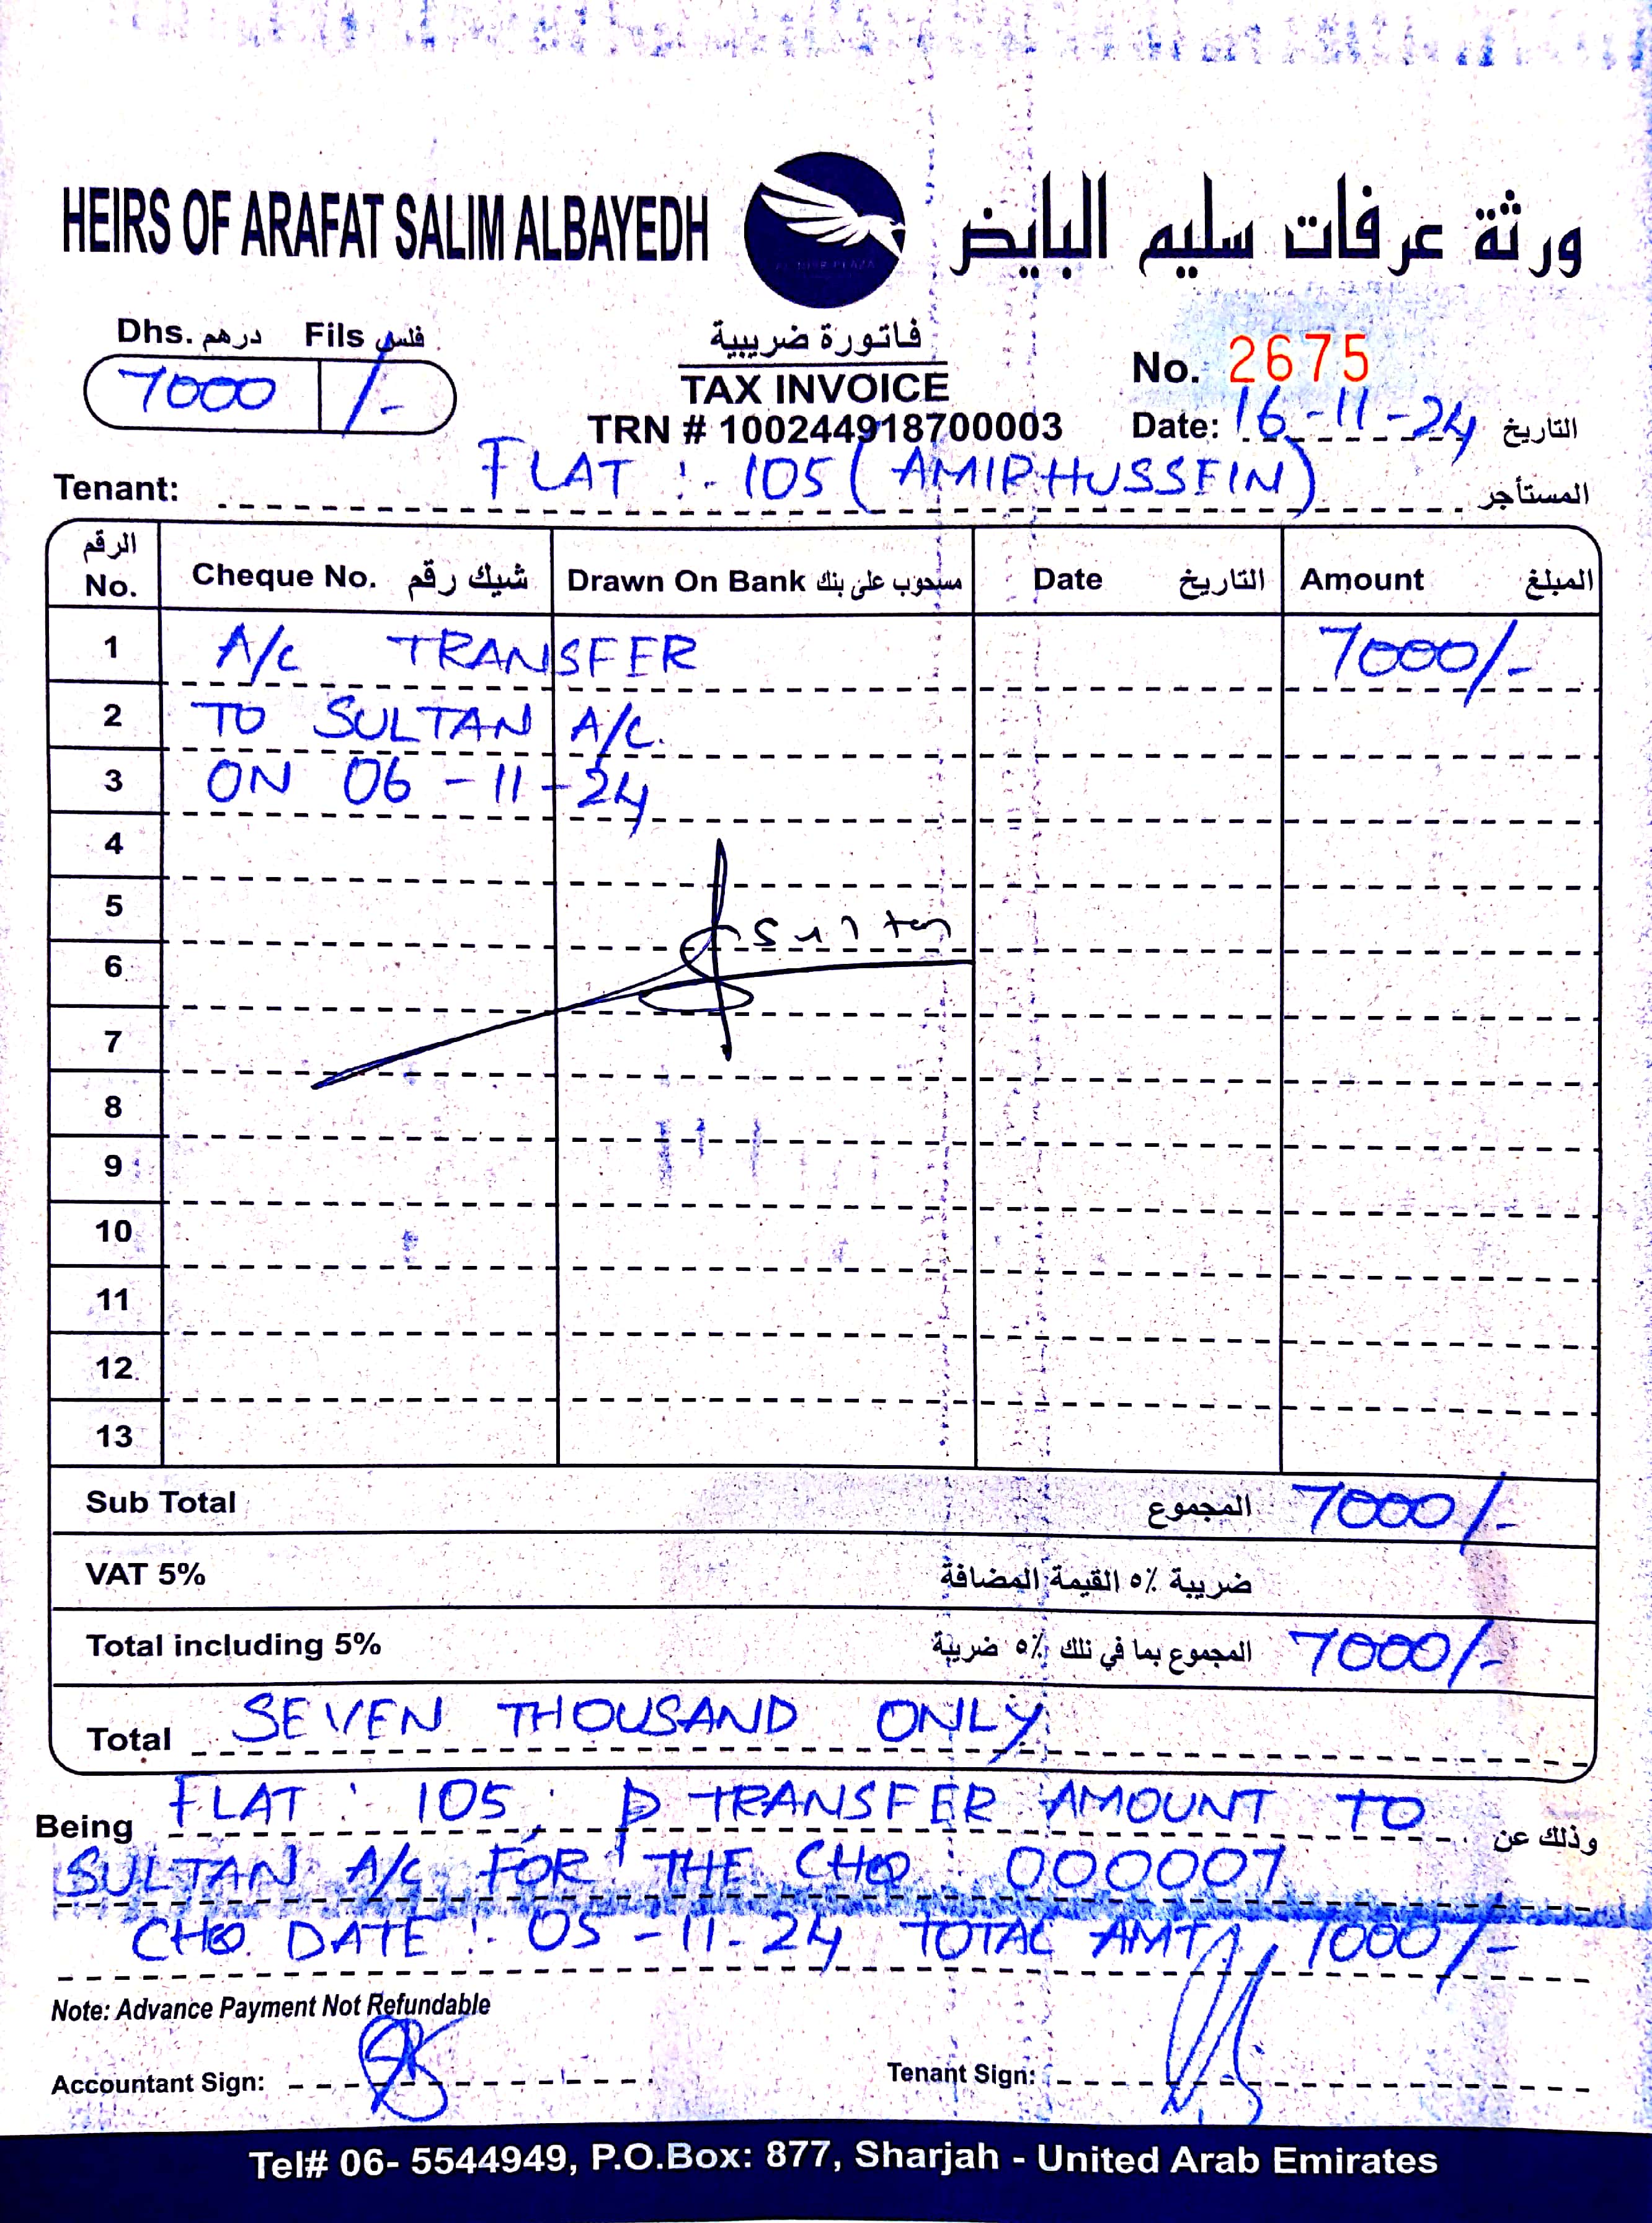 HEIRS OF ARAFAT SALIM ALBAYEDH ورثة عرفات سليم البايض
Dhs. درهم Fils فلس
7000 /-
فاتورة ضريبية
TAX INVOICE
TRN # 100244918700003
No. 2675
Date: 16-11-24 التاريخ
Tenant: FLAT :- 105 (AMIR HUSSEIN) المستأجر
الرقم No. Cheque No. شيك رقم Drawn On Bank مسحوب على بنك Date التاريخ Amount المبلغ
1 A/c TRANSFER 7000/-
2 TO SULTAN A/C.
3 ON 06-11-24
4
5 Sultan
6
7
8
9
10
11
12
13
Sub Total المجموع 7000/-
VAT 5% ضريبة ٥٪ القيمة المضافة
Total including 5% المجموع بما في ذلك ٥٪ ضريبة 7000/-
Total SEVEN THOUSAND ONLY
Being FLAT : 105, TRANSFER AMOUNT TO وذلك عن
SULTAN A/C FOR THE CHQ 000007
CHQ. DATE :- 05-11-24 TOTAL AMT 7000/-
Note: Advance Payment Not Refundable
Accountant Sign: Tenant Sign:
Tel# 06- 5544949, P.O.Box: 877, Sharjah - United Arab Emirates